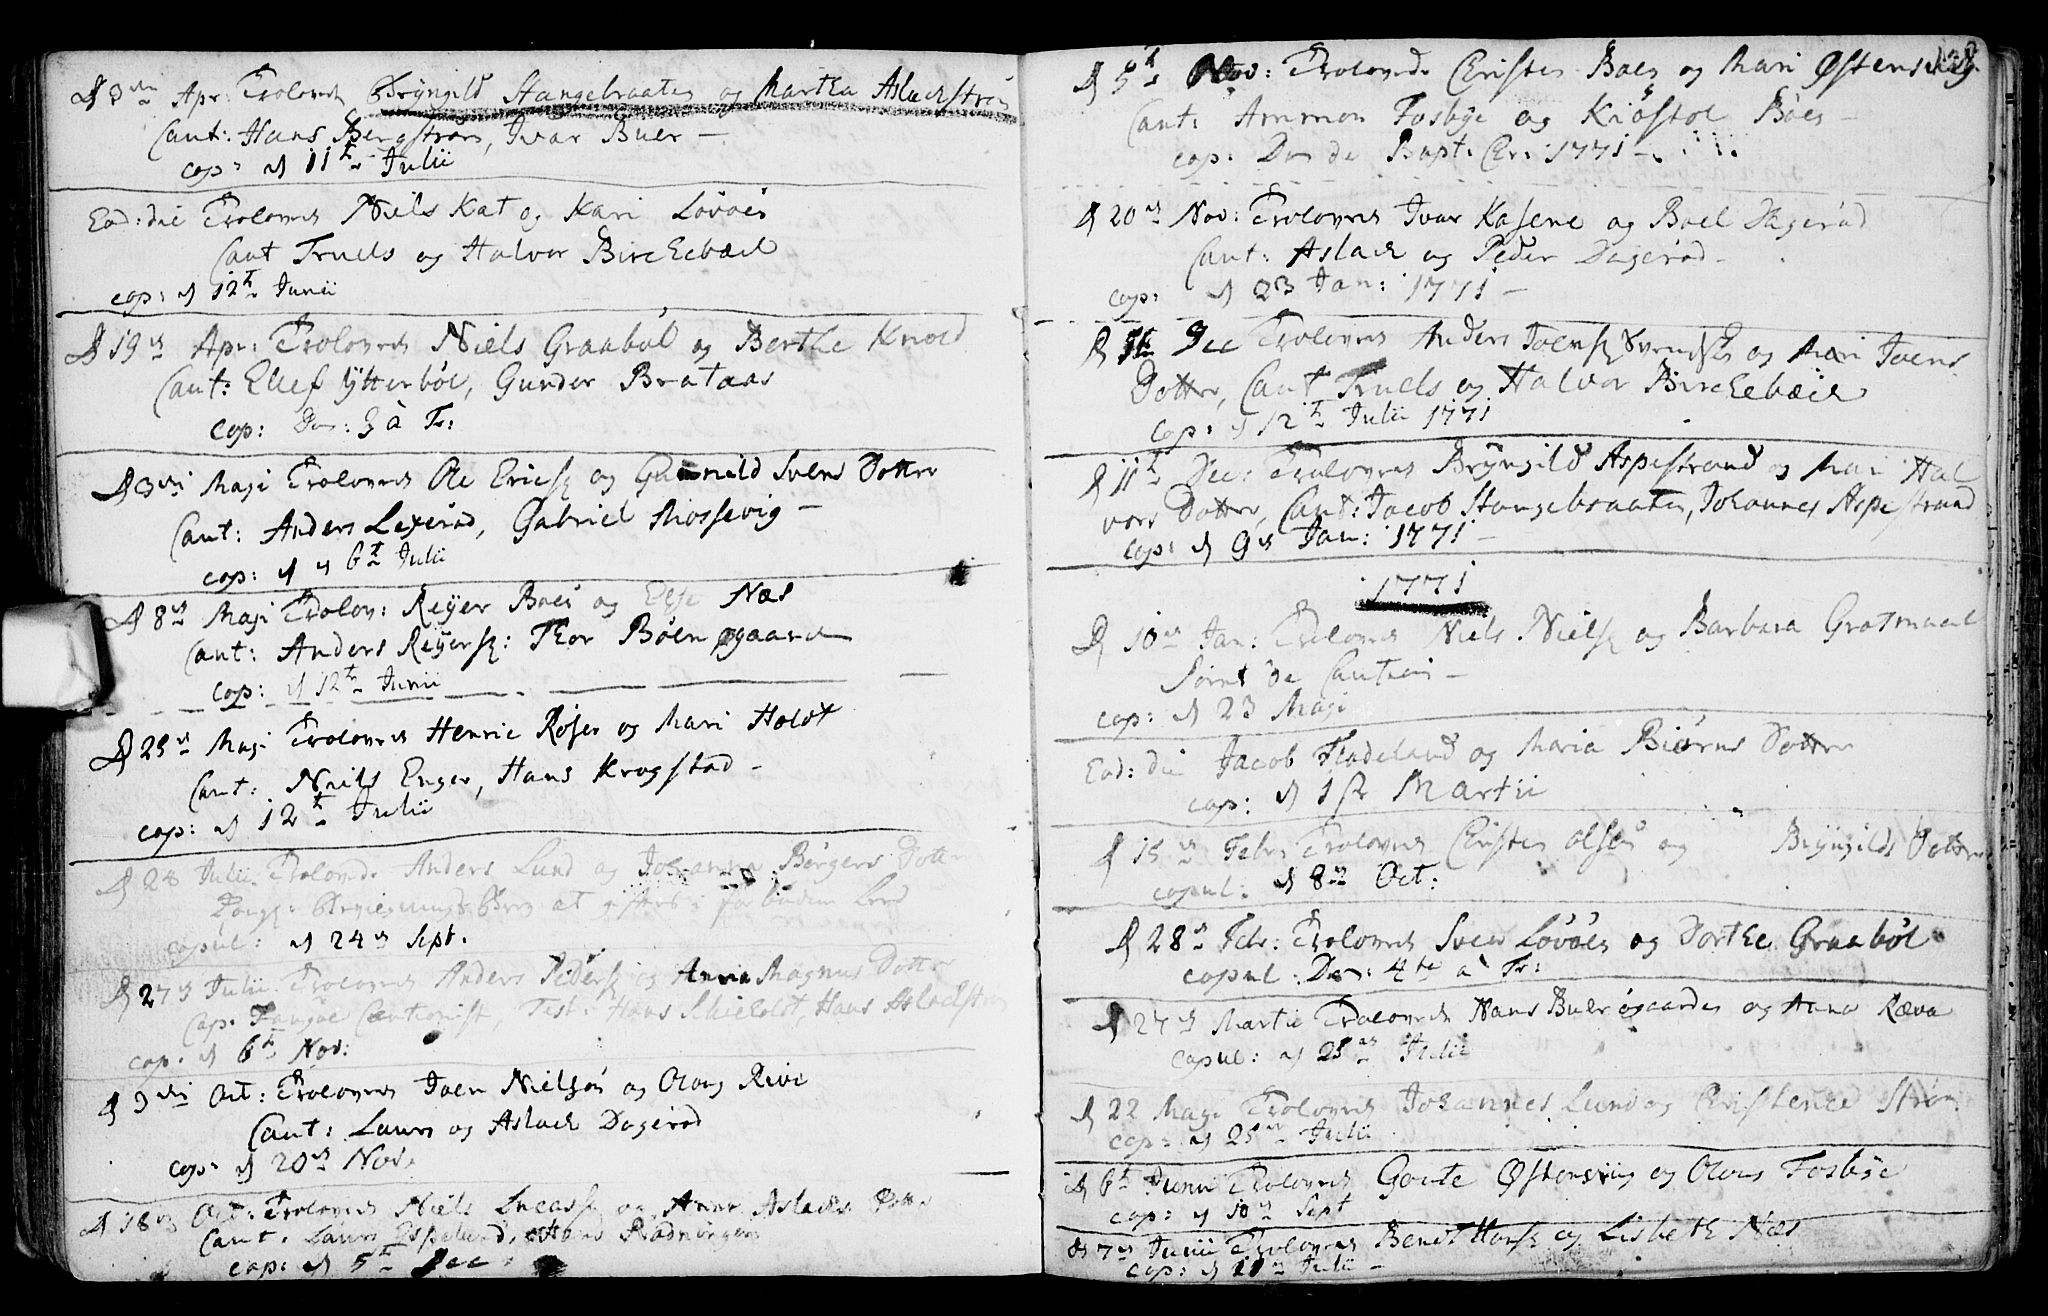 D 3die Apr: Trolovede Bryngild Stangebraaten og Martha Aslackstrøm
Caut: Hans Bergstrøm, Ivar Buer –
cop: d 11t Julii
Eod: die Trolovede Niels Kat og Kari Lövöes
Caut Truels og Halvor Birckebæck
cop: d 12t Junii
D 19de Apr: Trolovede Niels Graaböl og Berthe Knold
Caut: Ellef Ytterböl, Gunder Brataas
cop: Dom: 3 à Tr:
D 3die Maji Trolovede Ole Erichs: og Gunnild Svens Dotter
Caut: Anders Lexeröd, Gabriel Mossevig –
cop: d 6t Julii
D 8de Maji Trolov: Reyer Boes og Else Næs
Caut: Anders Reyers: Thor Böensgaard
cop: d 12t Junii
D 25de Maji Trolovede Henric Röser og Mari Holdt
Caut: Niels Enger, Hans Krogstad –
cop: d 12t Julii
D 28 Julii Trolovede Anders Lund og Johanna Börgers Dotter
i forbudne Leed
copul: d 24de Sept.
D 27de Julii Trolovede Anders Peders: og Anna Magnus Dotter
Cap. Cautionist, Test: Hans Skieldt, Hans Aslackstrøm
cop. d 6t Nov:
D 3die Oct: Trolovede Joen Nielsön og Oloug Rive
Caut: Laurs og Aslack Dageröd
cop: d 20de Nov.
D 18de Oct: Trolovede Niels Lucass: og Anne Aslacks Dotter
Caut. Laurs Espelund, Hans Rödningen
cop: d 5t Dec:
D 5t Nov: Trolovede Christen Boes og Mari Østensvig
Caut: Ammon Fosbye og Kiöstol Böes –
cop. Dom de Bapt: Chr: 1771 –
D 20de Nov: Trolovede Ivar Kasene og Boel Dageröd
Caut: Aslack og Peder Dageröd –
cop: d 23 Jan: 1771 –
D Dec Trolovede Anders Joens: Svendser og Mari Joens
Dotter, Caut Truels og Halvor Birckebæck
cop: d 12t Julii 1771
D 11t Dec: Trolovede Bryngild Aspestrand og Mari Hal
vors Dotter, Caut: Jacob Stangebraaten, Johannes Aspestrand
cop: d 9de Jan: 1771 –
1771
D 10de Jan: Trolovede Niels Niels: og Barbara Grotmaal
cop: d 23 Maji
Eod: die Jacob Fladeland og Maria Biörns Dotter
cop: d 1ste Martii
D 15de Febr: Trolovede Christen Olsön og Bryngilds Dotter
copul: d 8de Oct:
D 28de Febr: Trolovede Sven Lövöes og Dorthe Graaböl
copul: Dom: 4te à Tr:
D 27de Martii Trolovede Hans Buersgaarden og Anna Ræva
copul: d 25de Julii
D 22 Maji Trolovede Johannes Lund og Christence Ström
cop: d 25de Julii
D 6t Junii Trolovede Goute Østensvig og Olous Fosbye
cop: d 10de Sept
D 7de Junii Trolovede Bendt Hans: og Lisbeth Næs
cop: d 11de Julii –